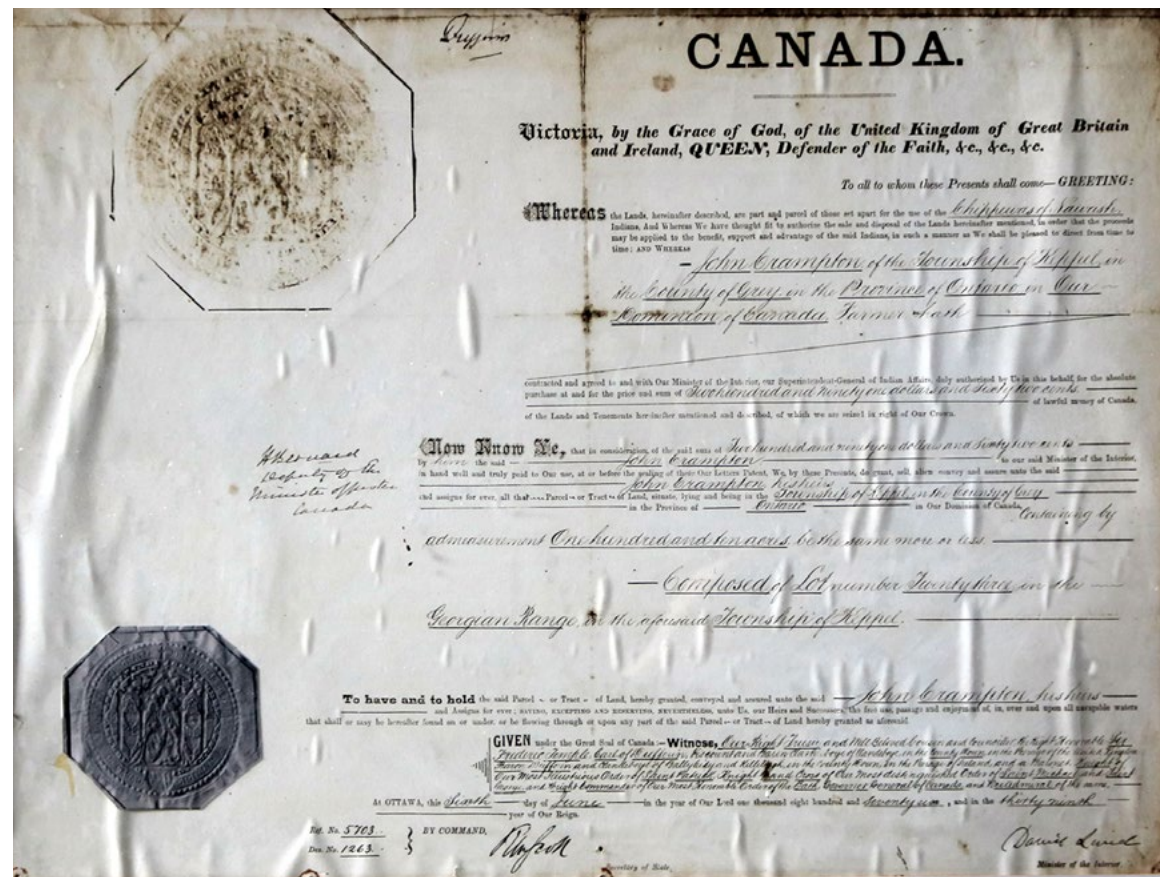 Dufferin
CANADA.
Victoria, by the Grace of God, of the United Kingdom of Great Britain
and Ireland, QUEEN, Defender of the Faith, &c., &c., &c.
To all to whom these Presents shall come—GREETING:
Whereas the Lands, hereinafter described, are part and parcel of those set apart for the use of the Chippewas of Nawash
Indians, And Whereas We have thought fit to authorize the sale and disposal of the Lands hereinafter mentioned, in order that the proceeds
may be applied to the benefit, support and advantage of the said Indians, in such a manner as We shall be pleased to direct from time to
time; AND WHEREAS
— John Crampton of the Township of Keppel, in
the County of Grey in the Province of Ontario in Our
Dominion of Canada, Farmer hath
contracted and agreed to and with Our Minister of the Interior, our Superintendent-General of Indian Affairs, duly authorized by Us in this behalf, for the absolute
purchase at and for the price and sum of Two hundred and ninety one dollars and sixty two cents
of lawful money of Canada,
of the Lands and Tenements hereinafter mentioned and described, of which we are seized in right of Our Crown.
Now Know Ye, that in consideration, of the said sum of Two hundred and ninety one dollars and sixty two cents
by him the said John Crampton to our said Minister of the Interior,
in hand well and truly paid to Our use, at or before the sealing of these Our Letters Patent, We, by these Presents, do grant, sell, alien convey and assure unto the said
John Crampton his heirs
and assigns for ever, all that Parcel or Tract of Land, situate, lying and being in the Township of Keppel in the County of Grey
in the Province of Ontario in Our Dominion of Canada, Containing by
admeasurement One hundred and ten acres be the same more or less
H Bernard
Deputy of the
Minister of Justice
Canada
— Composed of Lot number Twenty three in the
Georgian Range, in the aforesaid Township of Keppel.
To have and to hold the said Parcel or Tract of Land, hereby granted, conveyed and assured unto the said John Crampton, his heirs
and Assigns for ever; SAVING, EXCEPTING AND RESERVING, NEVERTHELESS, unto Us, our Heirs and Successors, the free use, passage and enjoyment of, in, over and upon all navigable waters
that shall or may be hereafter found on or under, or be flowing through or upon any part of the said Parcel or Tract of Land hereby granted as aforesaid.
GIVEN under the Great Seal of Canada:—Witness, Our Right Trusty and Well Beloved Cousin and Councillor the Right Honorable Sir
Frederic Temple, Earl of Dufferin, Viscount and Baron Clandeboye of Clandeboye, in the County Down, in the Peerage of the United Kingdom
Baron Dufferin and Clandeboye of Ballyleidy and Killeleagh, in the County Down, in the Peerage of Ireland, and a Baronet, Knight of
Our Most Illustrious Order of Saint Patrick, Knight Grand Cross of Our Most distinguished Order of Saint Michael and Saint
George and Knight Commander of Our Most Honorable Order of the Bath, Governor General of Canada, and Vice Admiral of the same.
At OTTAWA, this Sixth day of June in the year of Our Lord one thousand eight hundred and seventy six, and in the thirty ninth
year of Our Reign.
Ref. No. 5703.
Des. No. 1263.
BY COMMAND,
RW Scott
Secretary of State.
David Laird
Minister of the Interior.